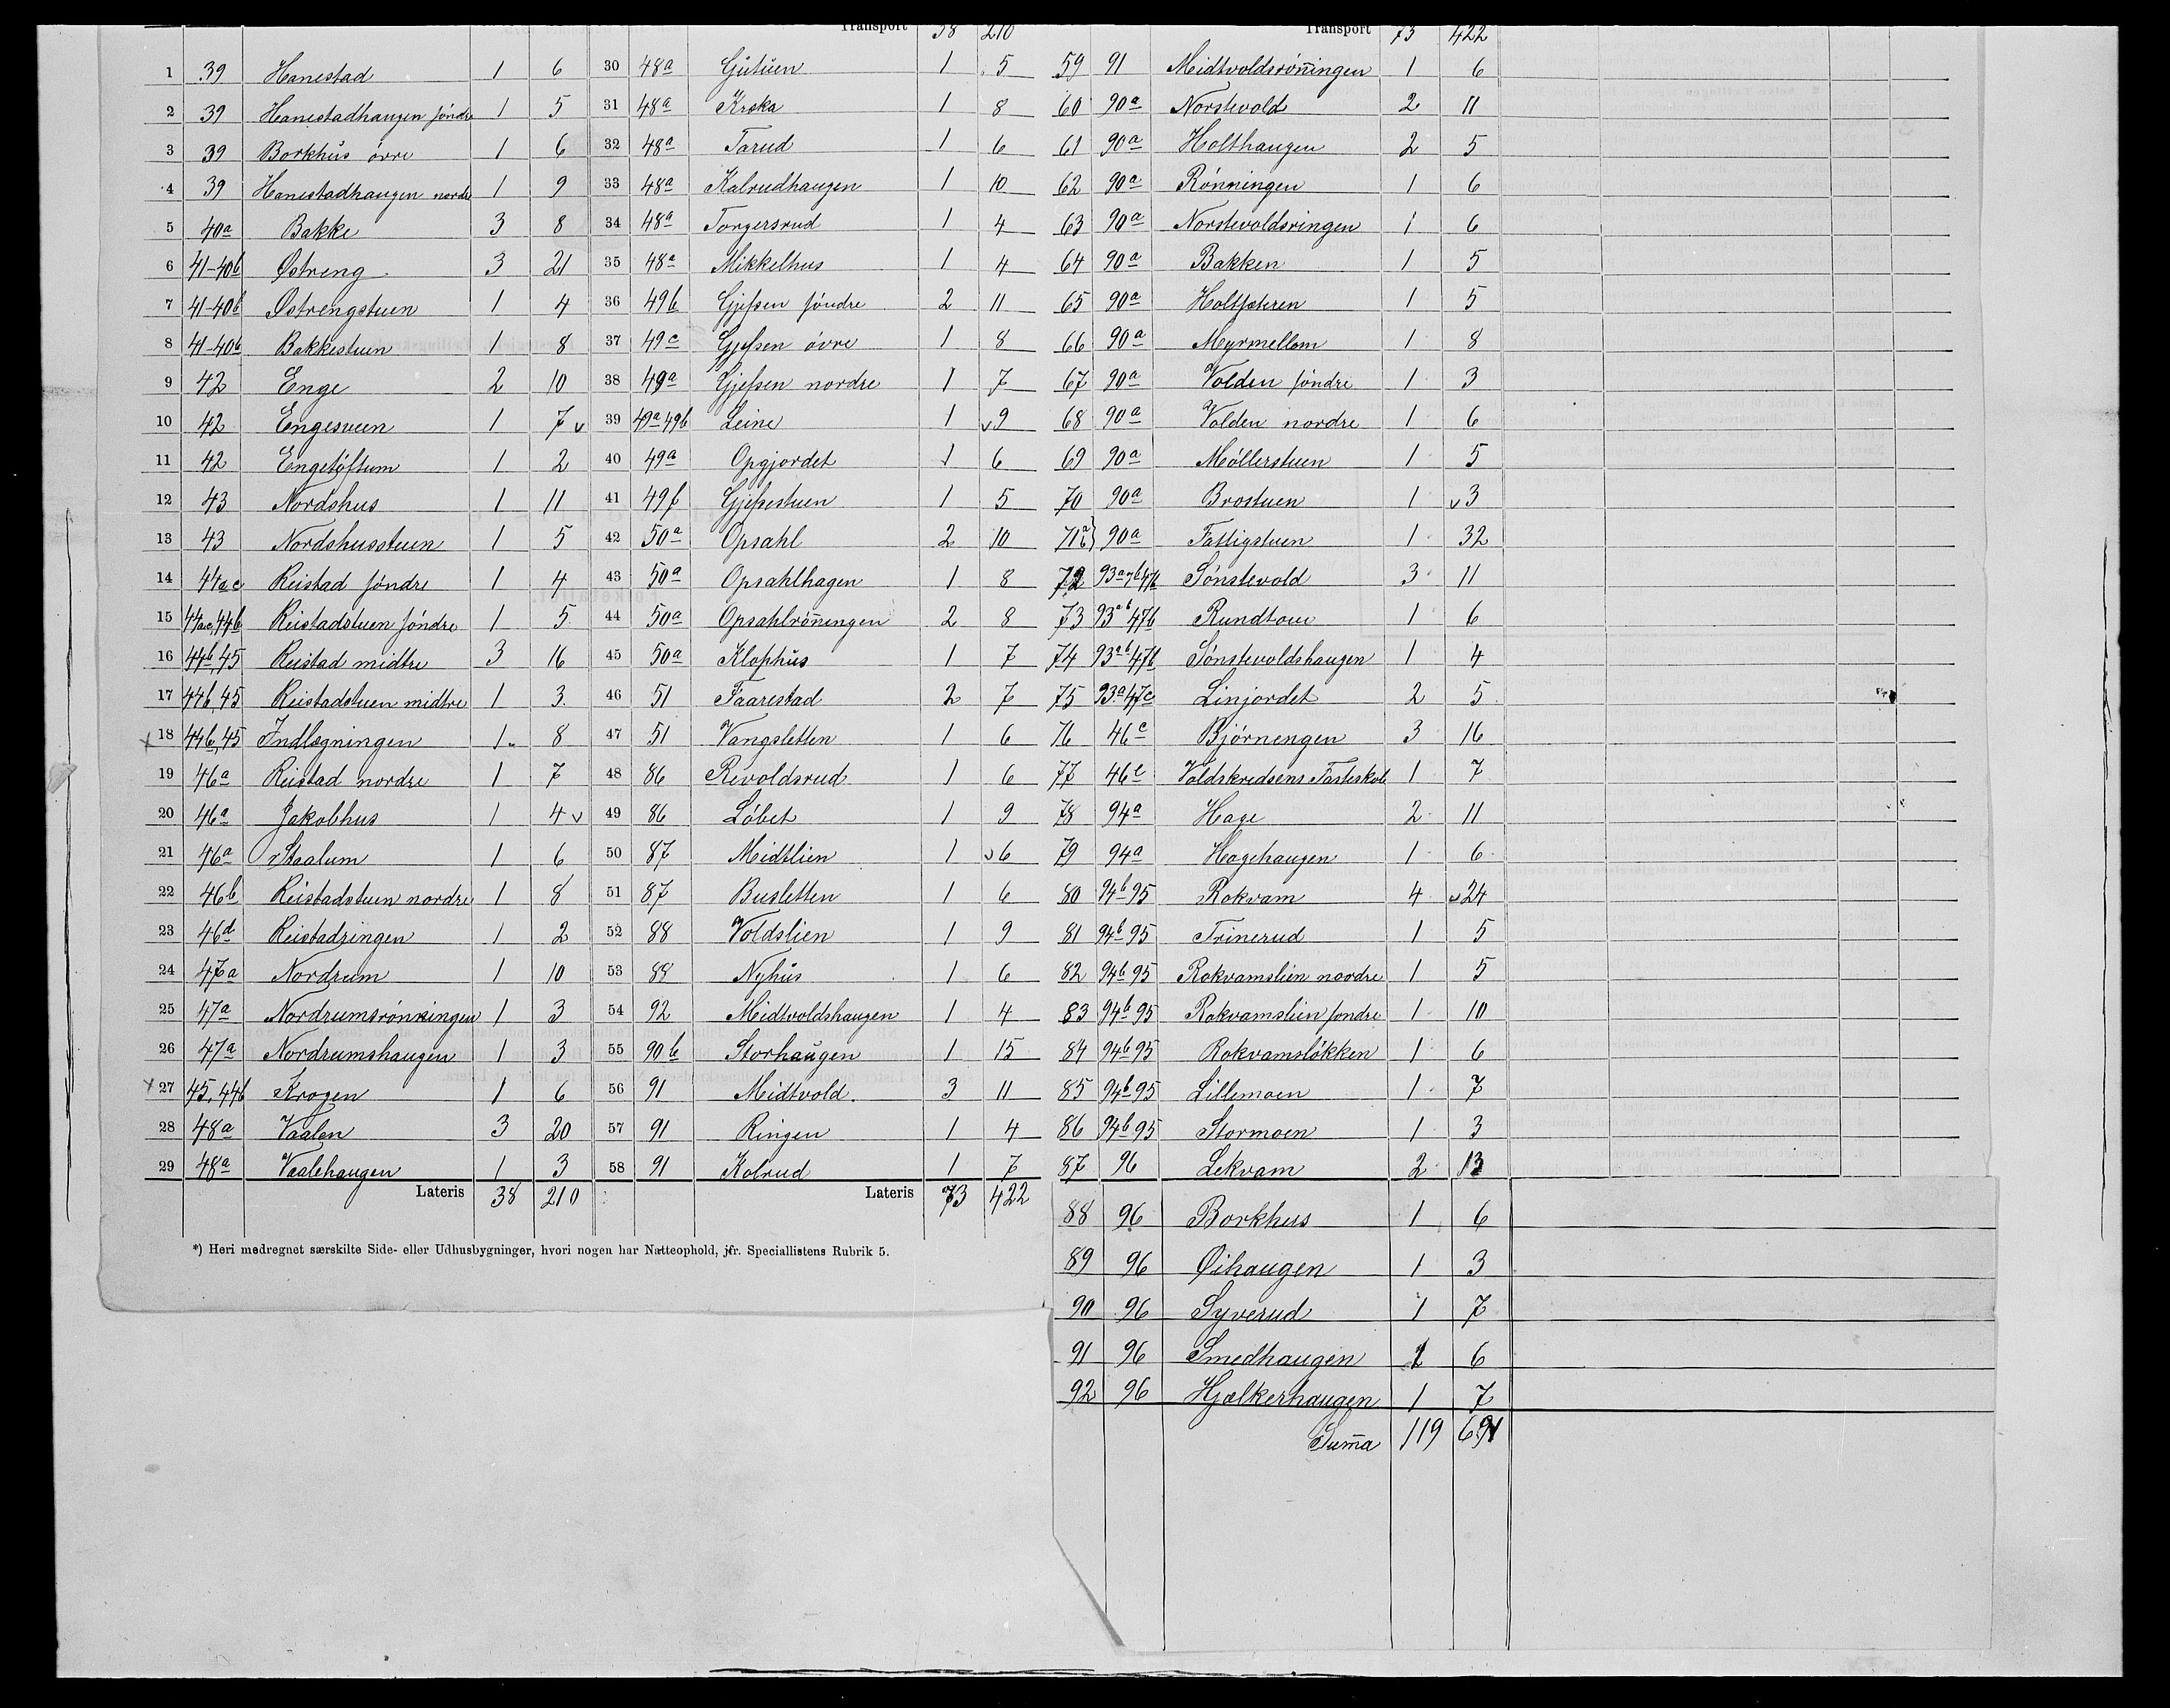 1 39 Hanestad 1 6
2 39 Hanestadhaugen søndre 1 5
3 39 Borkhus øvre 1 6
4 39 Hanestadhaugen nordre 1 9
5 40a Bakke 3 8
6 41-40b Østreng 3 21
7 41-40b Østrengstuen 1 4
8 41-40b Bakkestuen 1 8
9 42 Enge 2 10
10 42 Engesveen 1 7 v
11 42 Engetøftum 1 2
12 43 Nordshus 1 11
13 43 Nordshusstuen 1 5
14 44a c Reistad søndre 1 4
15 44ac,44b Reistadstuen søndre 1 5
16 44b,45 Reistad midtre 3 16
17 44b,45 Reistadstuen midtre 1 3
x 18 44b,45 Indlægningen 1 8
19 46a Reistad nordre 1 7
20 46a Jakobhus 1 4 v
21 46a Staalum 1 6
22 46b Reistadstuen nordre 1 8
23 46d Reistadringen 1 2
24 47a Nordrum 1 10
25 47a Nordrumsrønningen 1 3
26 47a Nordrumshaugen 1 3
x 27 45,44b Krogen 1 6
28 48a Vaalen 3 20
29 48a Vaalehaugen 1 3
Lateris 38 210
*) Heri medregnet særskilte Side- eller Udhusbygninger, hvori nogen har Natteophold, jfr. Speciallistens Rubrik 5.
Transport 38 210
30 48a Gutuen 1 5
31 48a Krska 1 8
32 48a Tarud 1 6
33 48a Kalrudhaugen 1 10
34 48a Torgersrud 1 4
35 48a Mikkelhus 1 4
36 49b Gjessen søndre 2 11
37 49c Gjessen øvre 1 8
38 49a Gjessen nordre 1 7
39 49a 49b Leine 1 v 9
40 49a Opgjordet 1 6
41 49b Gjessestuen 1 5
42 50a Opsahl 2 10
43 50a Opsahlhagen 1 8
44 50a Opsahlrønningen 2 8
45 50a Klophus 1 7
46 51 Faarestad 2 7
47 51 Vangsletten 1 6
48 86 Revoldsrud 1 6
49 86 Løbet 1 9
50 87 Midtlien 1 v 6
51 87 Busletten 1 6
52 88 Voldslien 1 9
53 88 Nyhus 1 6
54 92 Midtvoldshaugen 1 4
55 90b Storhaugen 1 15
56 91 Midtvold 3 11
57 91 Ringen 1 4
58 91 Kolrud 1 7
Lateris 73 422
Transport 73 422
59 91 Midtvoldsrønningen 1 6
60 90a Norstevold 2 11
61 90a Holthaugen 2 5
62 90a Rønningen 1 6
63 90a Norstevoldsringen 1 6
64 90a Bakken 1 5
65 90a Holtsæteren 1 5
66 90a Myrmellom 1 8
67 90a Volden søndre 1 3
68 90a Volden nordre 1 6
69 90a Møllerstuen 1 5
70 90a Brostuen 1 v 3
71 a b } 90a Fattigstuen 1 32
72 93a-b 47b Sønstevold 3 11
73 93a b 47b Rundtom 1 6
74 93a b 47b Sønstevoldshaugen 1 4
75 93a 47c Linjordet 2 5
76 46c Bjørnengen 3 16
77 46c Voldskredsens Fasteskole 1 7
78 94a Hage 2 11
79 94a Hagehaugen 1 6
80 94b 95 Rokvam 4 v 24
81 94b 95 Trinerud 1 5
82 94b 95 Rokvamslien nordre 1 5
83 94b 95 Rokvamslien søndre 1 10
84 94b 95 Rokvamsløkken 1 6
85 94b 95 Lillemoen 1 7
86 94b 95 Stormoen 1 3
87 96 Lekvam 2 13
88 96 Borkhus 1 6
89 96 Øihaugen 1 3
90 96 Syverud 1 7
91 96 Smedhaugen 1 6
92 96 Hjælkerhaugen 1 7
Summa 119 691